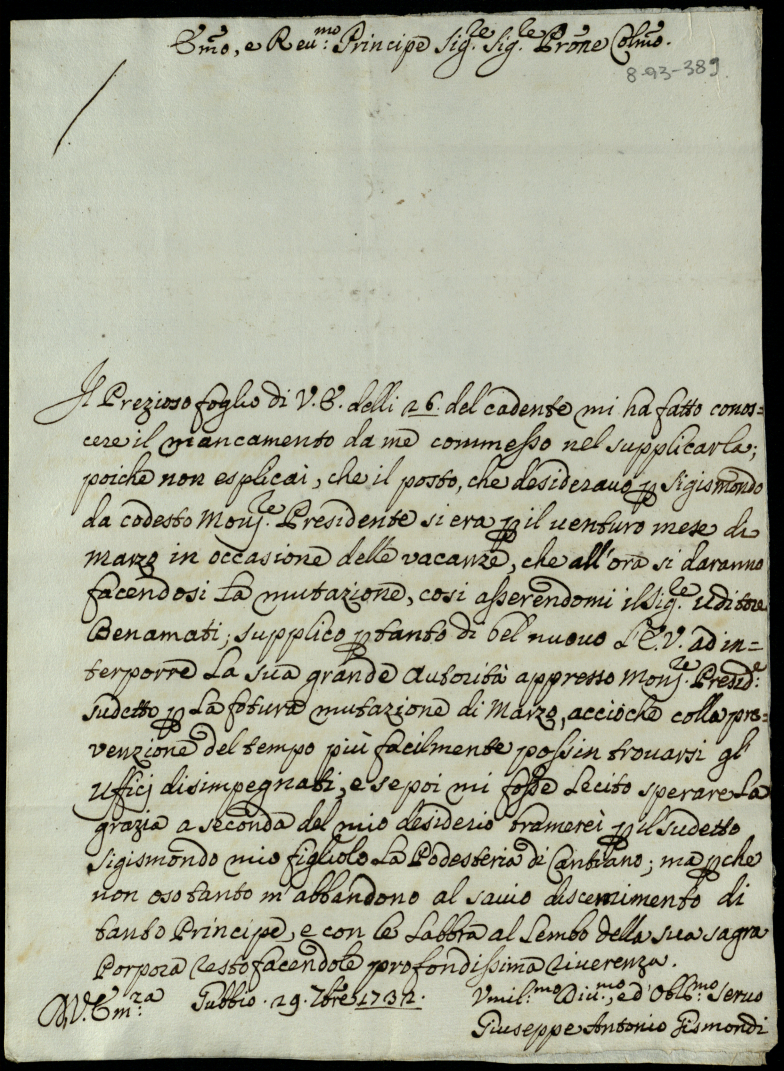 Emo, e Reu.mo Principe Sig.re Sig.re Prone Colmo.
8-93-389
Il Prezioso foglio di V. E. delli 26. del cadente mi ha fatto conos=
cere il mancamento da me commesso nel supplicarla;
poiche non esplicai, che il posto, che desiderauo p Sigismondo
da codesto Mons.re Presidente si era p il uenturo mese di
Marzo in occasione delle vacanze, che all'ora si daranno
facendosi la mutazione, cosi asserendomi il Sig.re Uditore
Benamati; supplico ptanto di bel nuouo l'E.V. ad in=
terporre la sua grande Autorità appresso Mons.re Presid.e
sudetto p la futura mutazione di Marzo, accioche colla pre=
venzione del tempo più facilmente possin trouarsi gl'
Uffici disimpegnati, e se poi mi fosse lecito sperare la
grazia a seconda del mio desiderio bramerei p il sudetto
Sigismondo mio figliolo la Podesteria di Cantiano; ma pche
non oso tanto m'abbandono al sauio discernimento di
tanto Principe, e con le labbra al lembo della sua sagra
Porpora resto facendole profondissima riuerenza.
D. V. Em.za Gubbio . 29. 7bre 1732. Vmil.mo Diu.mo, ed Obb.mo Seruo
Giuseppe Antonio Gismondi